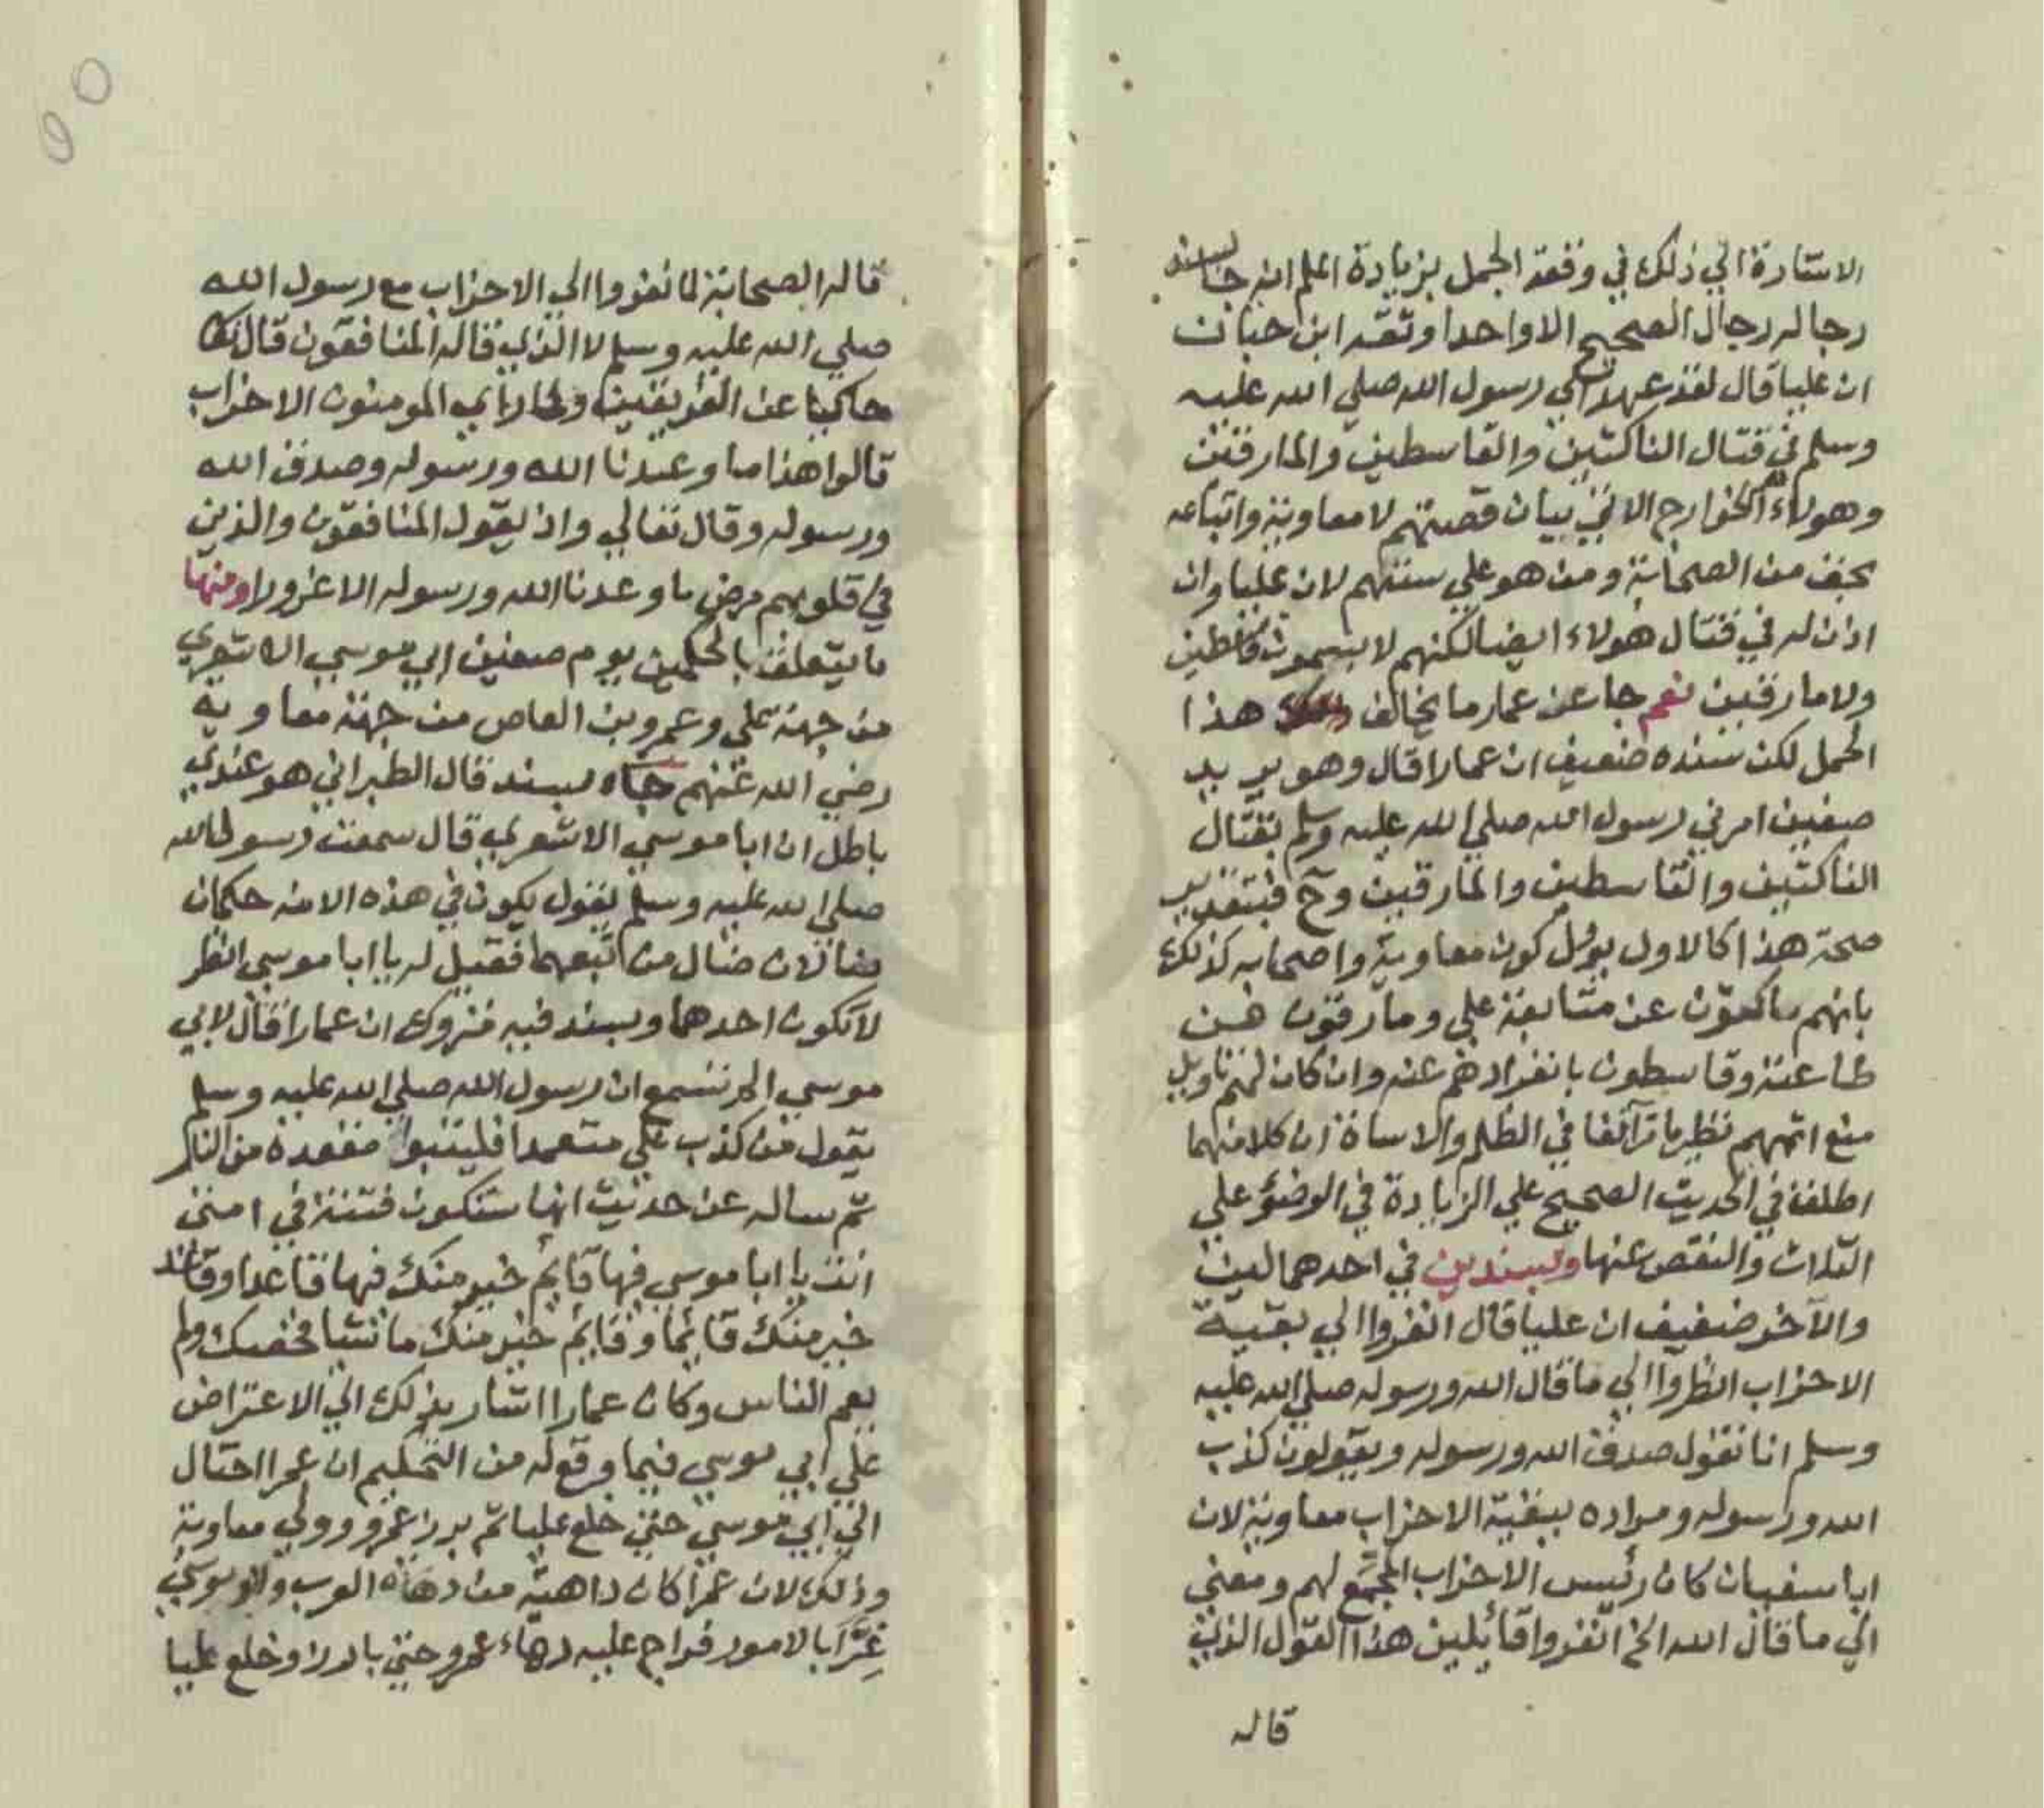 الاشارة الي ذلك في وقعة الجمل بزيادة اعلم انه جا بسند
رجاله رجال الصحيح الا واحدا وثقه ابن حبان
ان عليا قال لقد عهد الي رسول الله صلي الله عليه
وسلم في قتال الناكثين والقاسطين والمارقين
وهولاء الخوارج الاتي بيان قصتهم لا معاوية واتباعه
بحق من الصحابة ومن هو علي سننهم لان عليا وان
اذن له في قتال هولاء ايضا لكنهم لا يسمون قاسطين
ولا مارقين نعم جا عن عمار ما يخالف هذا
الحمل لكن سنده ضعيف ان عمارا قال وهو يريد
صفين امرني رسول الله صلي الله عليه وسلم بقتال
الناكثين والقاسطين والمارقين وح فبتقدير
صحة هذا كالاول يؤل كون معاوية واصحابه كذلك
بانهم ناكثون عن متابعة علي ومارقون من
طاعته وقاسطون بانفرادهم عنه وان كان لهم تاويل
منع اثمهم نظير ما مر آنفا في الظلم والاساة ان كلا منهما
اطلق في الحديث الصحيح علي الزيادة في الوضؤ علي
الثلاث والنقص عنها وبسندين في احدهما لين
والآخر ضعيف ان عليا قال انفروا الي بقية
الاحزاب انظروا الي ما قال الله ورسوله صلي الله عليه
وسلم انا نقول صدق الله ورسوله ويقولون كذب
الله ورسوله ومراده ببقية الاحزاب معاوية لان
ابا سفيان كان رئيس الاحزاب المجمع لهم ومعني
الي ما قال الله الخ انفروا قائلين هذا القول الذي
قاله
قاله الصحابة لما نفروا الي الاحزاب مع رسول الله
صلي الله عليه وسلم لا الذي قاله المنافقون قال تعا
حاكيا عن الفريقين ولما راي المومنون الاحزاب
قالوا هذا ما وعدنا الله ورسوله وصدق الله
ورسوله وقال تعالي واذ يقول المنافقون والذين
في قلوبهم مرض ما وعدنا الله ورسوله الا غرورا ومنها
ما يتعلق بالحكمين يوم صفين ابي موسي الاشعري
من جهة علي وعمرو بن العاص من جهة معاويه
رضي الله عنهم جاه بسند قال الطبراني هو عندي
باطل ان ابا موسي الاشعري قال سمعت رسول الله
صلي الله عليه وسلم يقول يكون في هذه الامة حكمان
ضالان ضال من اتبعهما فقيل له يا ابا موسي انظر
لا تكون احدهما وبسند فيه متروك ان عمارا قال لابي
موسي الم تسمع ان رسول الله صلي الله عليه وسلم
يقول من كذب علي متعمدا فليتبوا مقعده من النار
ثم ساله عن حديث انها ستكون فتنة في امتي
انت يا ابا موسي فيها قايم خير منك فيها قاعدا وقاعد
خير منك قائما وقايم خير منك ماشيا فخصك ولم
يعم الناس وكان عمارا اشار بذلك الي الاعتراض
علي ابي موسي فيما وقع له من التحكيم ان عمرا احتال
الي ابي موسي حتي خلع عليا ثم برز عمرو وولي معاوية
وذلك لان عمرا كان داهية من دهاه العرب وابو موسي
غرا بالامور فراج عليه دهاء عمرو حتي بادر وخلع عليا